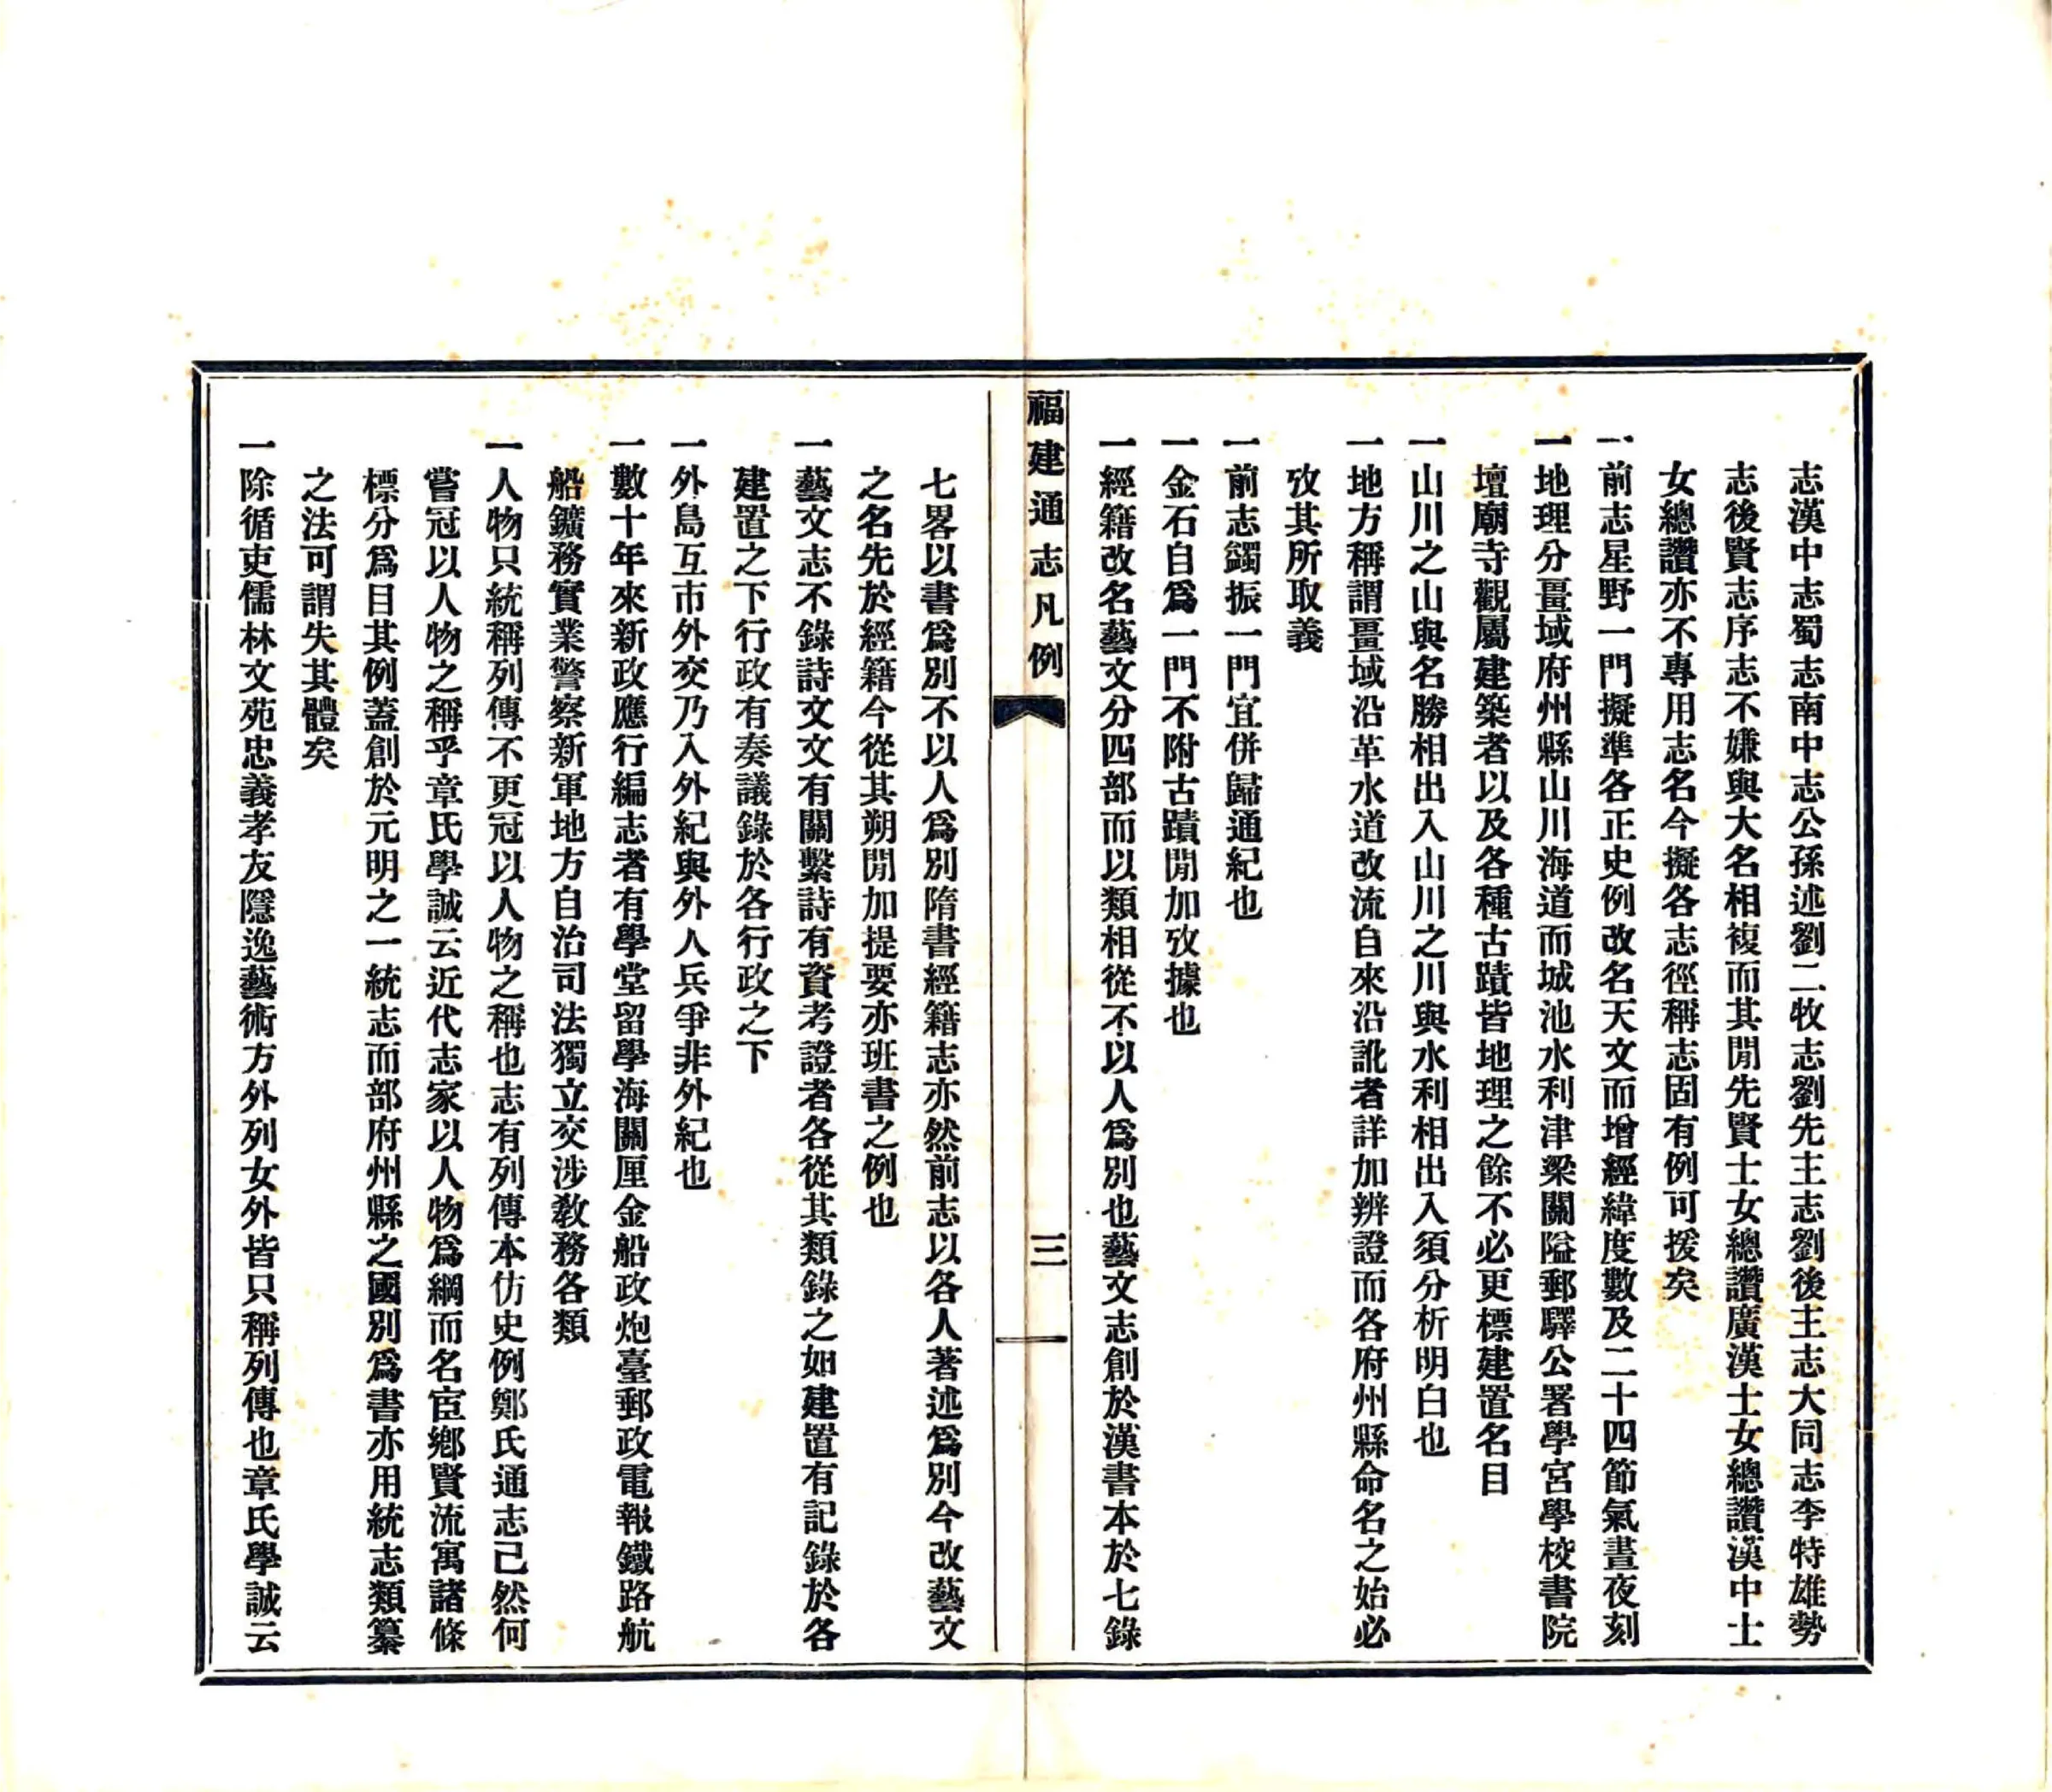 志漢中志蜀志南中志公孫述劉二牧志劉先主志劉後主志大同志李特雄勢
志後賢志序志不嫌與大名相複而其閒先賢士女總讚廣漢士女總讚漢中士
女總讚亦不專用志名今擬各志徑稱志固有例可援矣
一前志星野一門擬準各正史例改名天文而增經緯度數及二十四節氣晝夜刻
一地理分畺域府州縣山川海道而城池水利津梁關隘郵驛公署學宮學校書院
壇廟寺觀屬建築者以及各種古蹟皆地理之餘不必更標建置名目
一山川之山與名勝相出入山川之川與水利相出入須分析明白也
一地方稱謂畺域沿革水道改流自來沿訛者詳加辨證而各府州縣命名之始必
攷其所取義
一前志蠲振一門宜併歸通紀也
一金石自爲一門不附古蹟閒加攷據也
一經籍改名藝文分四部而以類相從不以人爲別也藝文志創於漢書本於七錄
福建通志凡例
三
七畧以書爲別不以人爲別隋書經籍志亦然前志以各人著述爲別今改藝文
之名先於經籍今從其朔閒加提要亦班書之例也
一藝文志不錄詩文文有關繫詩有資考證者各從其類錄之如建置有記錄於各
建置之下行政有奏議錄於各行政之下
一外島互市外交乃入外紀與外人兵爭非外紀也
一數十年來新政應行編志者有學堂留學海關厘金船政炮臺郵政電報鐵路航
船鑛務實業警察新軍地方自治司法獨立交涉敎務各類
一人物只統稱列傳不更冠以人物之稱也志有列傳本仿史例鄭氏通志已然何
嘗冠以人物之稱乎章氏學誠云近代志家以人物爲綱而名宦鄉賢流寓諸條
標分爲目其例蓋創於元明之一統志而部府州縣之國別爲書亦用統志類纂
之法可謂失其體矣
一除循吏儒林文苑忠義孝友隱逸藝術方外列女外皆只稱列傳也章氏學誠云